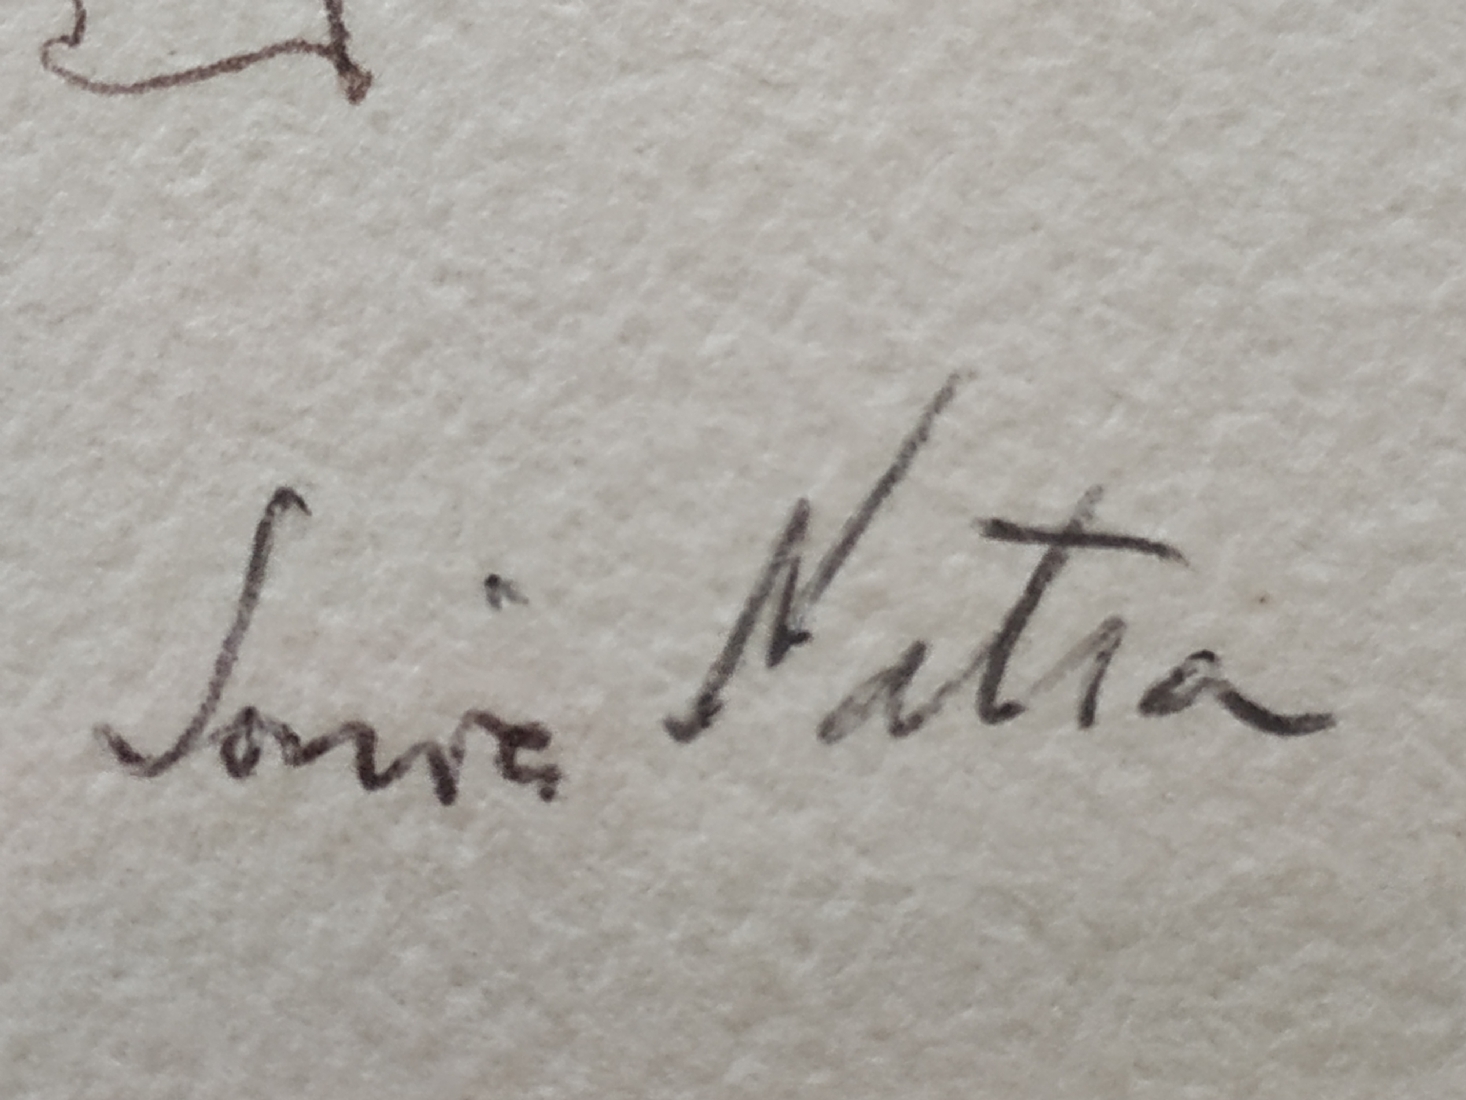 Sonia Natra